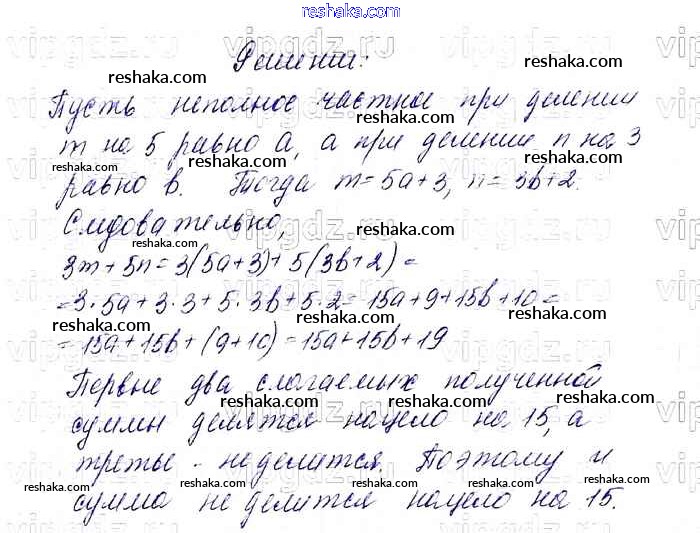 reshaka.com
Решение:
Пусть неполное частное при делении
m на 5 равно a, а при делении n на 3
равно b. Тогда m=5a+3, n=3b+2.
Следовательно,
3m+5n=3(5a+3)+5(3b+2)=
=3·5a+3·3+5·3b+5·2=15a+9+15b+10=
=15a+15b+(9+10)=15a+15b+19
Первые два слагаемых полученной
суммы делятся нацело на 15, а
третье - не делится. Поэтому и
сумма не делится нацело на 15.